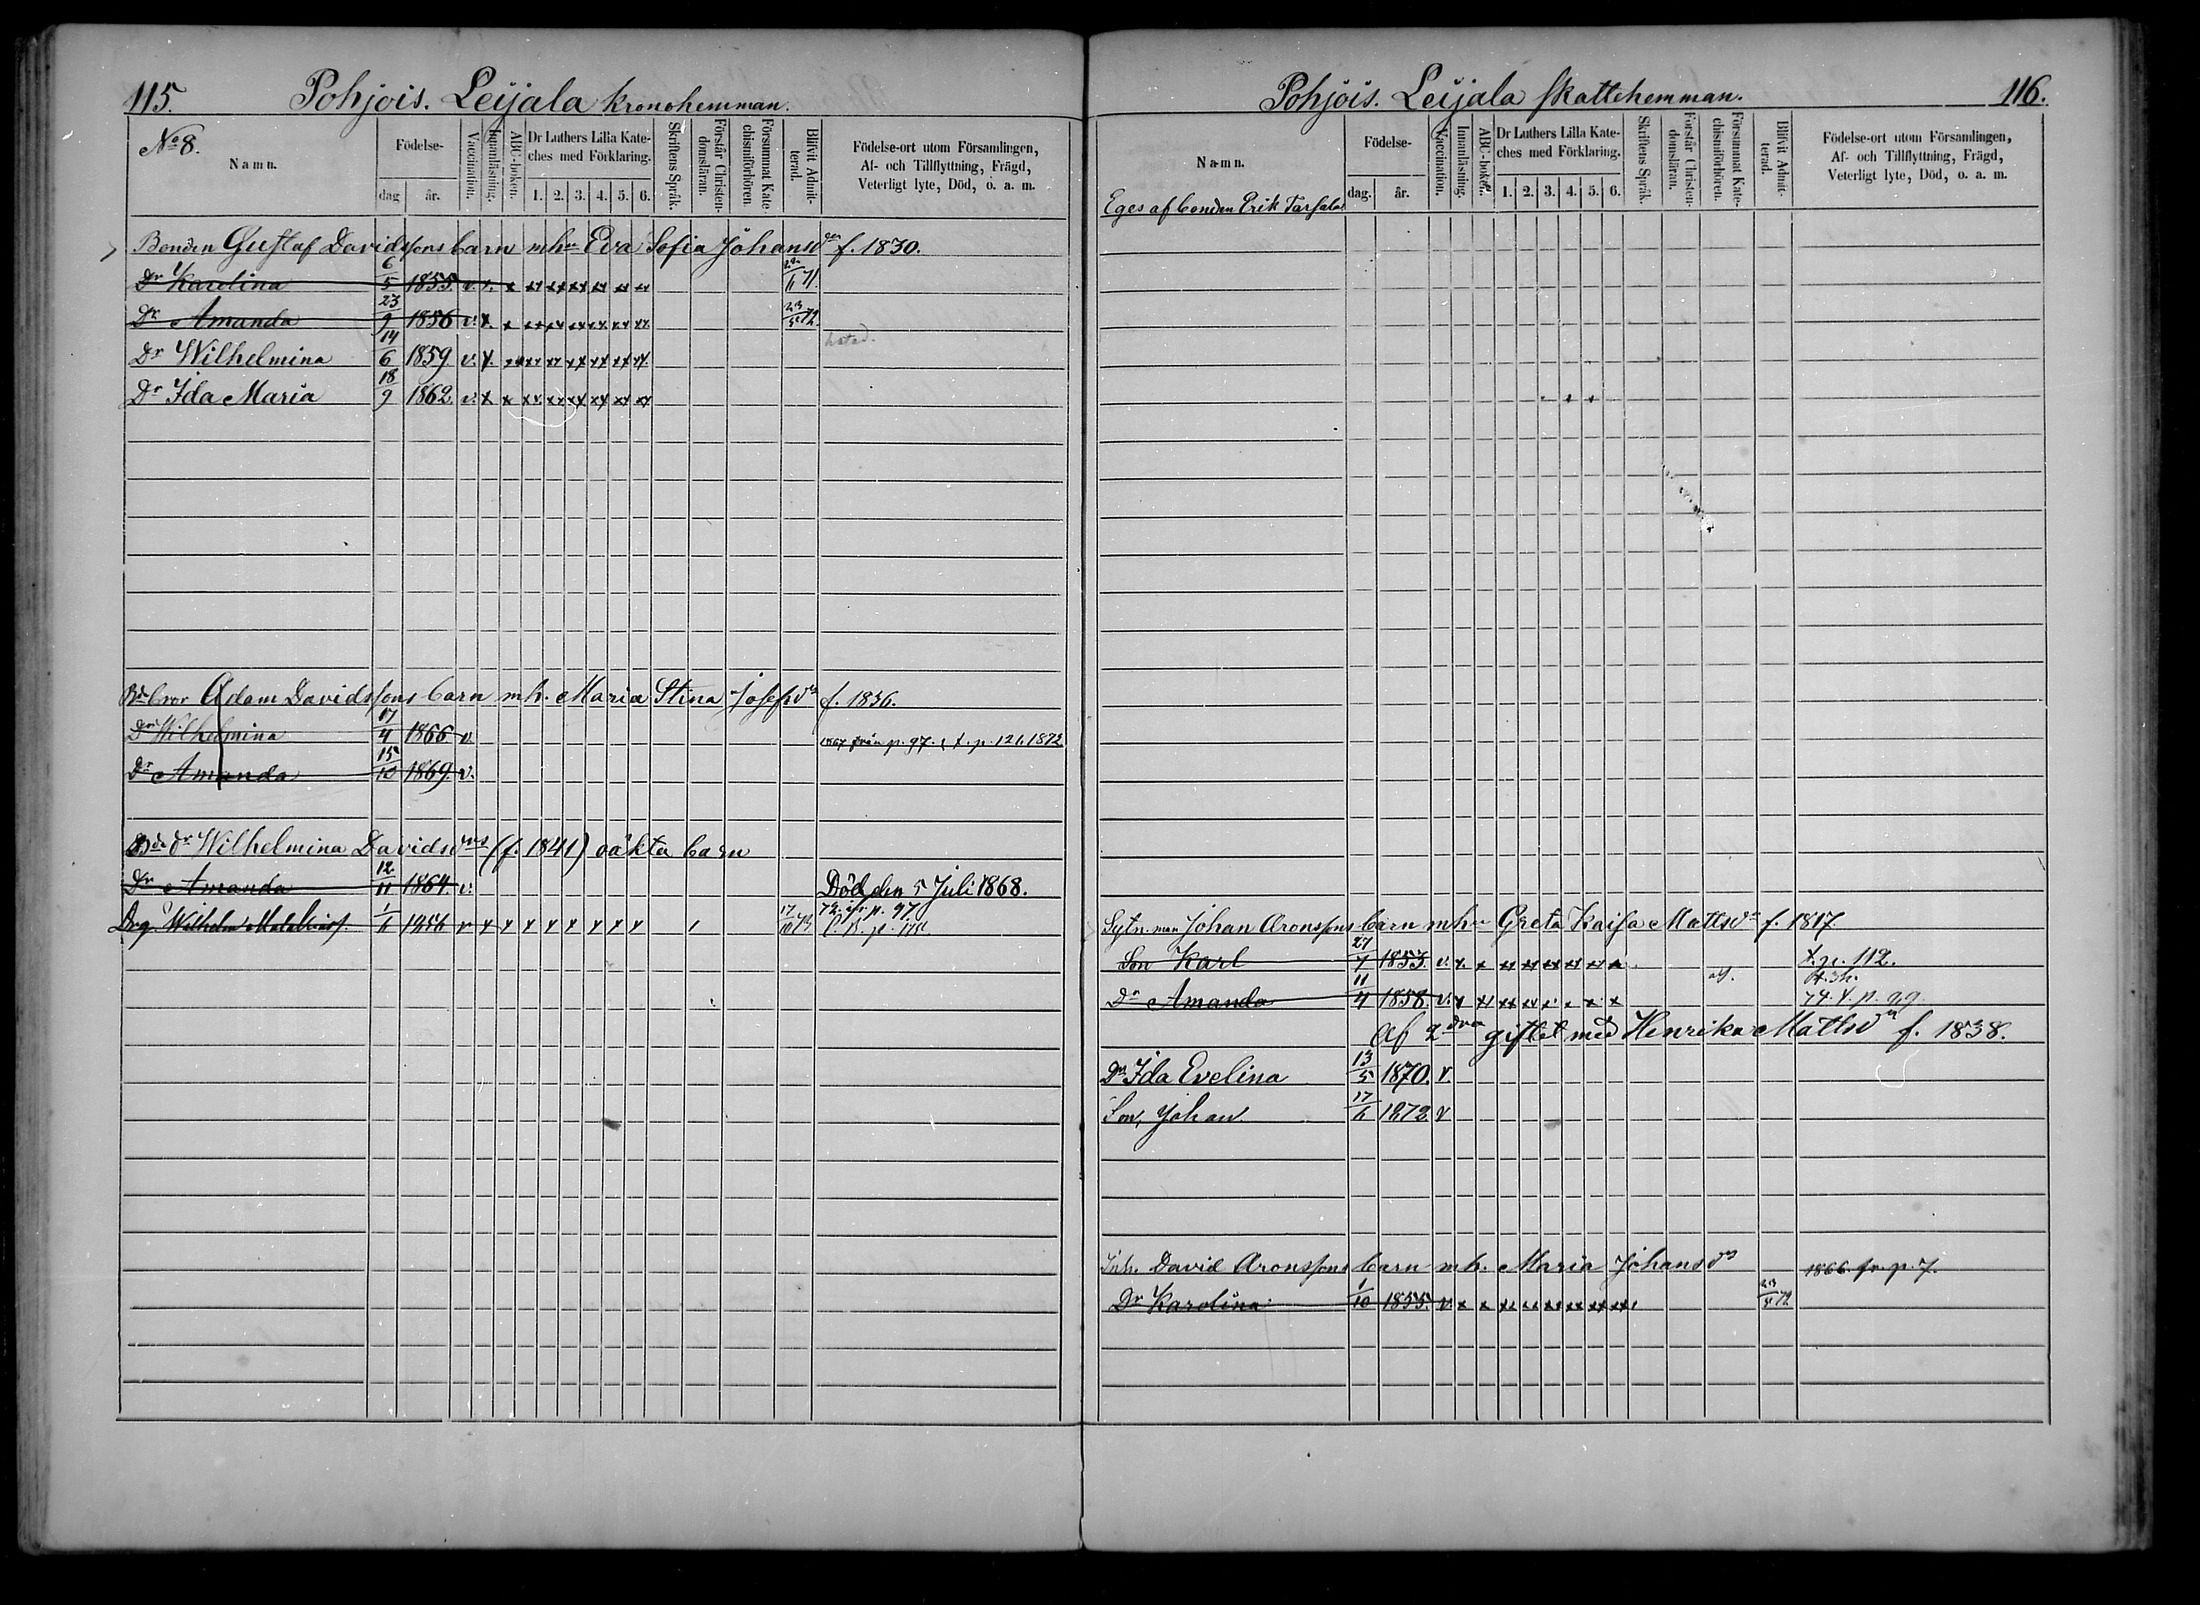 115. Pohjois. Leijala Kronohemman.
No 8.
Namn.
Födelse-
dag
år.
Vaccination.
Innanläsning.
ABC-boken.
Dr Luthers Lilla Kate-
ches med Förklaring.
1. 2. 3. 4. 5. 6.
Skriftens Språk.
Förstår Christen-
domsläran.
Försummat Kate-
chismiförhören.
Blifvit Admit-
terad.
Födelse-ort utom Församlingen,
Af- och Tillflyttning, Frägd,
Veterligt lyte, Död, o. a. m.
Bonden Gustaf Davidssons barn mhu Eva Sofia Johansdr f. 1830.
Dr Karolina 6/5 1855 v. x x xx xx xx xx xx xx 71.
Dr Amanda 23/9 1856 v. x. x xx xx xx xx xx xx 23/5 72
Dr Wilhelmina 14/6 1859. v. x. xx xx xx xx xx xx xx
Dr Ida Maria 18/9 1862. v. x x xx xx xx xx xx xx
Bds bror Adam Davidssons barn mh. Maria Stina Josefsdr f. 1836.
Dr Wilhelmina 17/4 1866 v. 1867 från p. 97. t. p. 121. 1872
Dr Amanda 15/10 1869 v.
Bds dr Wilhelmina Davidsdrs (f. 1841) oäkta barn
Dr Amanda 12/11 1864. v. Död den 5 Juli 1868.
Drg. Wilhelm 1/6 1856 v x x x x x x x x 17/10 72 72 ifr. p. 97
116.
Pohjois. Leijala skattehemman.
Namn.
Eges af bonden Erik Tarsala
Födelse-
dag.
år.
Vaccination.
Innanläsning.
ABC-boken.
Dr Luthers Lilla Kate-
ches med Förklaring.
1. 2. 3. 4. 5. 6.
Skriftens Språk.
Förstår Christen-
domsläran.
Försummat Kate-
chismiförhören.
Blifvit Admit-
terad.
Födelse-ort utom Församlingen,
Af- och Tillflyttning, Frägd,
Veterligt lyte, Död, o. a. m.
Sytn. man Johan Aronssons barn mhu Greta Kaisa Mattsdr f. 1817.
Son Karl 27/7 1853. v. x. x xx xx xx xx xx x t. p. 112.
Dr Amanda 11/4 1858. v. x xx xx xx x x x x 74. t. p. 99.
Af 2dra giftet med Henrika Mattsdr f. 1838.
Dr Ida Evelina 13/5 1870. v.
Son, Johan. 17/6 1872 v
Inh. David Aronssons barn mh. Maria Johansdr 1866. fr. p. 7.
Dr Karolina 1/10 1855. v. x x xx xx xx xx xx xx 23/5 72